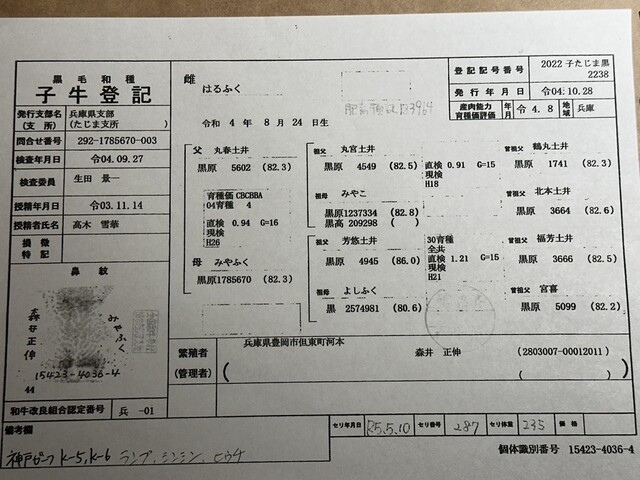 黒毛和種
子牛登記
発行支部名 兵庫県支部
(支所) (たじま支所)
問合せ番号 292-1785670-003
検査年月日 令04.09.27
検査委員 生田 景一
授精年月日 令03.11.14
授精者氏名 高木 雪華
損徴
特記
鼻紋
みやふく
森井正伸
15423-4036-4
44
和牛改良組合認定番号 兵 -01
雌
はるふく
令和 4年 8月 24日生
登記記号番号 2022 子たじま黒
2238
発行年月日 令04.10.28
産肉能力
育種価評価 年月 令4.8 地域 兵庫
父 丸春土井
黒原 5602 (82.3)
育種価 CBCBBA
04育種 4
直検 0.94 G=16
現検
H26
母 みやふく
黒原1785670 (82.3)
祖父 丸宮土井
黒原 4549 (82.5)
直検 0.91 G=15
現検
H18
祖母 みやこ
黒原1237334 (82.8)
黒高 209298 ( )
祖父 芳悠土井
黒原 4945 (86.0)
30育種
全共
直検 1.21 G=15
現検
H21
祖母 よしふく
黒 2574981 (80.6)
曾祖父 鶴丸土井
黒原 1741 (82.3)
曾祖父 北本土井
黒原 3664 (82.6)
曾祖父 福芳土井
黒原 3666 (82.5)
曾祖父 宮喜
黒原 5099 (82.2)
繁殖者 兵庫県豊岡市但東町河本
森井 正伸 (2803007-00012011)
(管理者) ( )
セリ年月日 R5.5.10 セリ番号 287 セリ体重 235 価格
備考欄
神戸ビーフ K-5, K-6 ランプ、シンシン、ヒウチ
個体識別番号 15423-4036-4